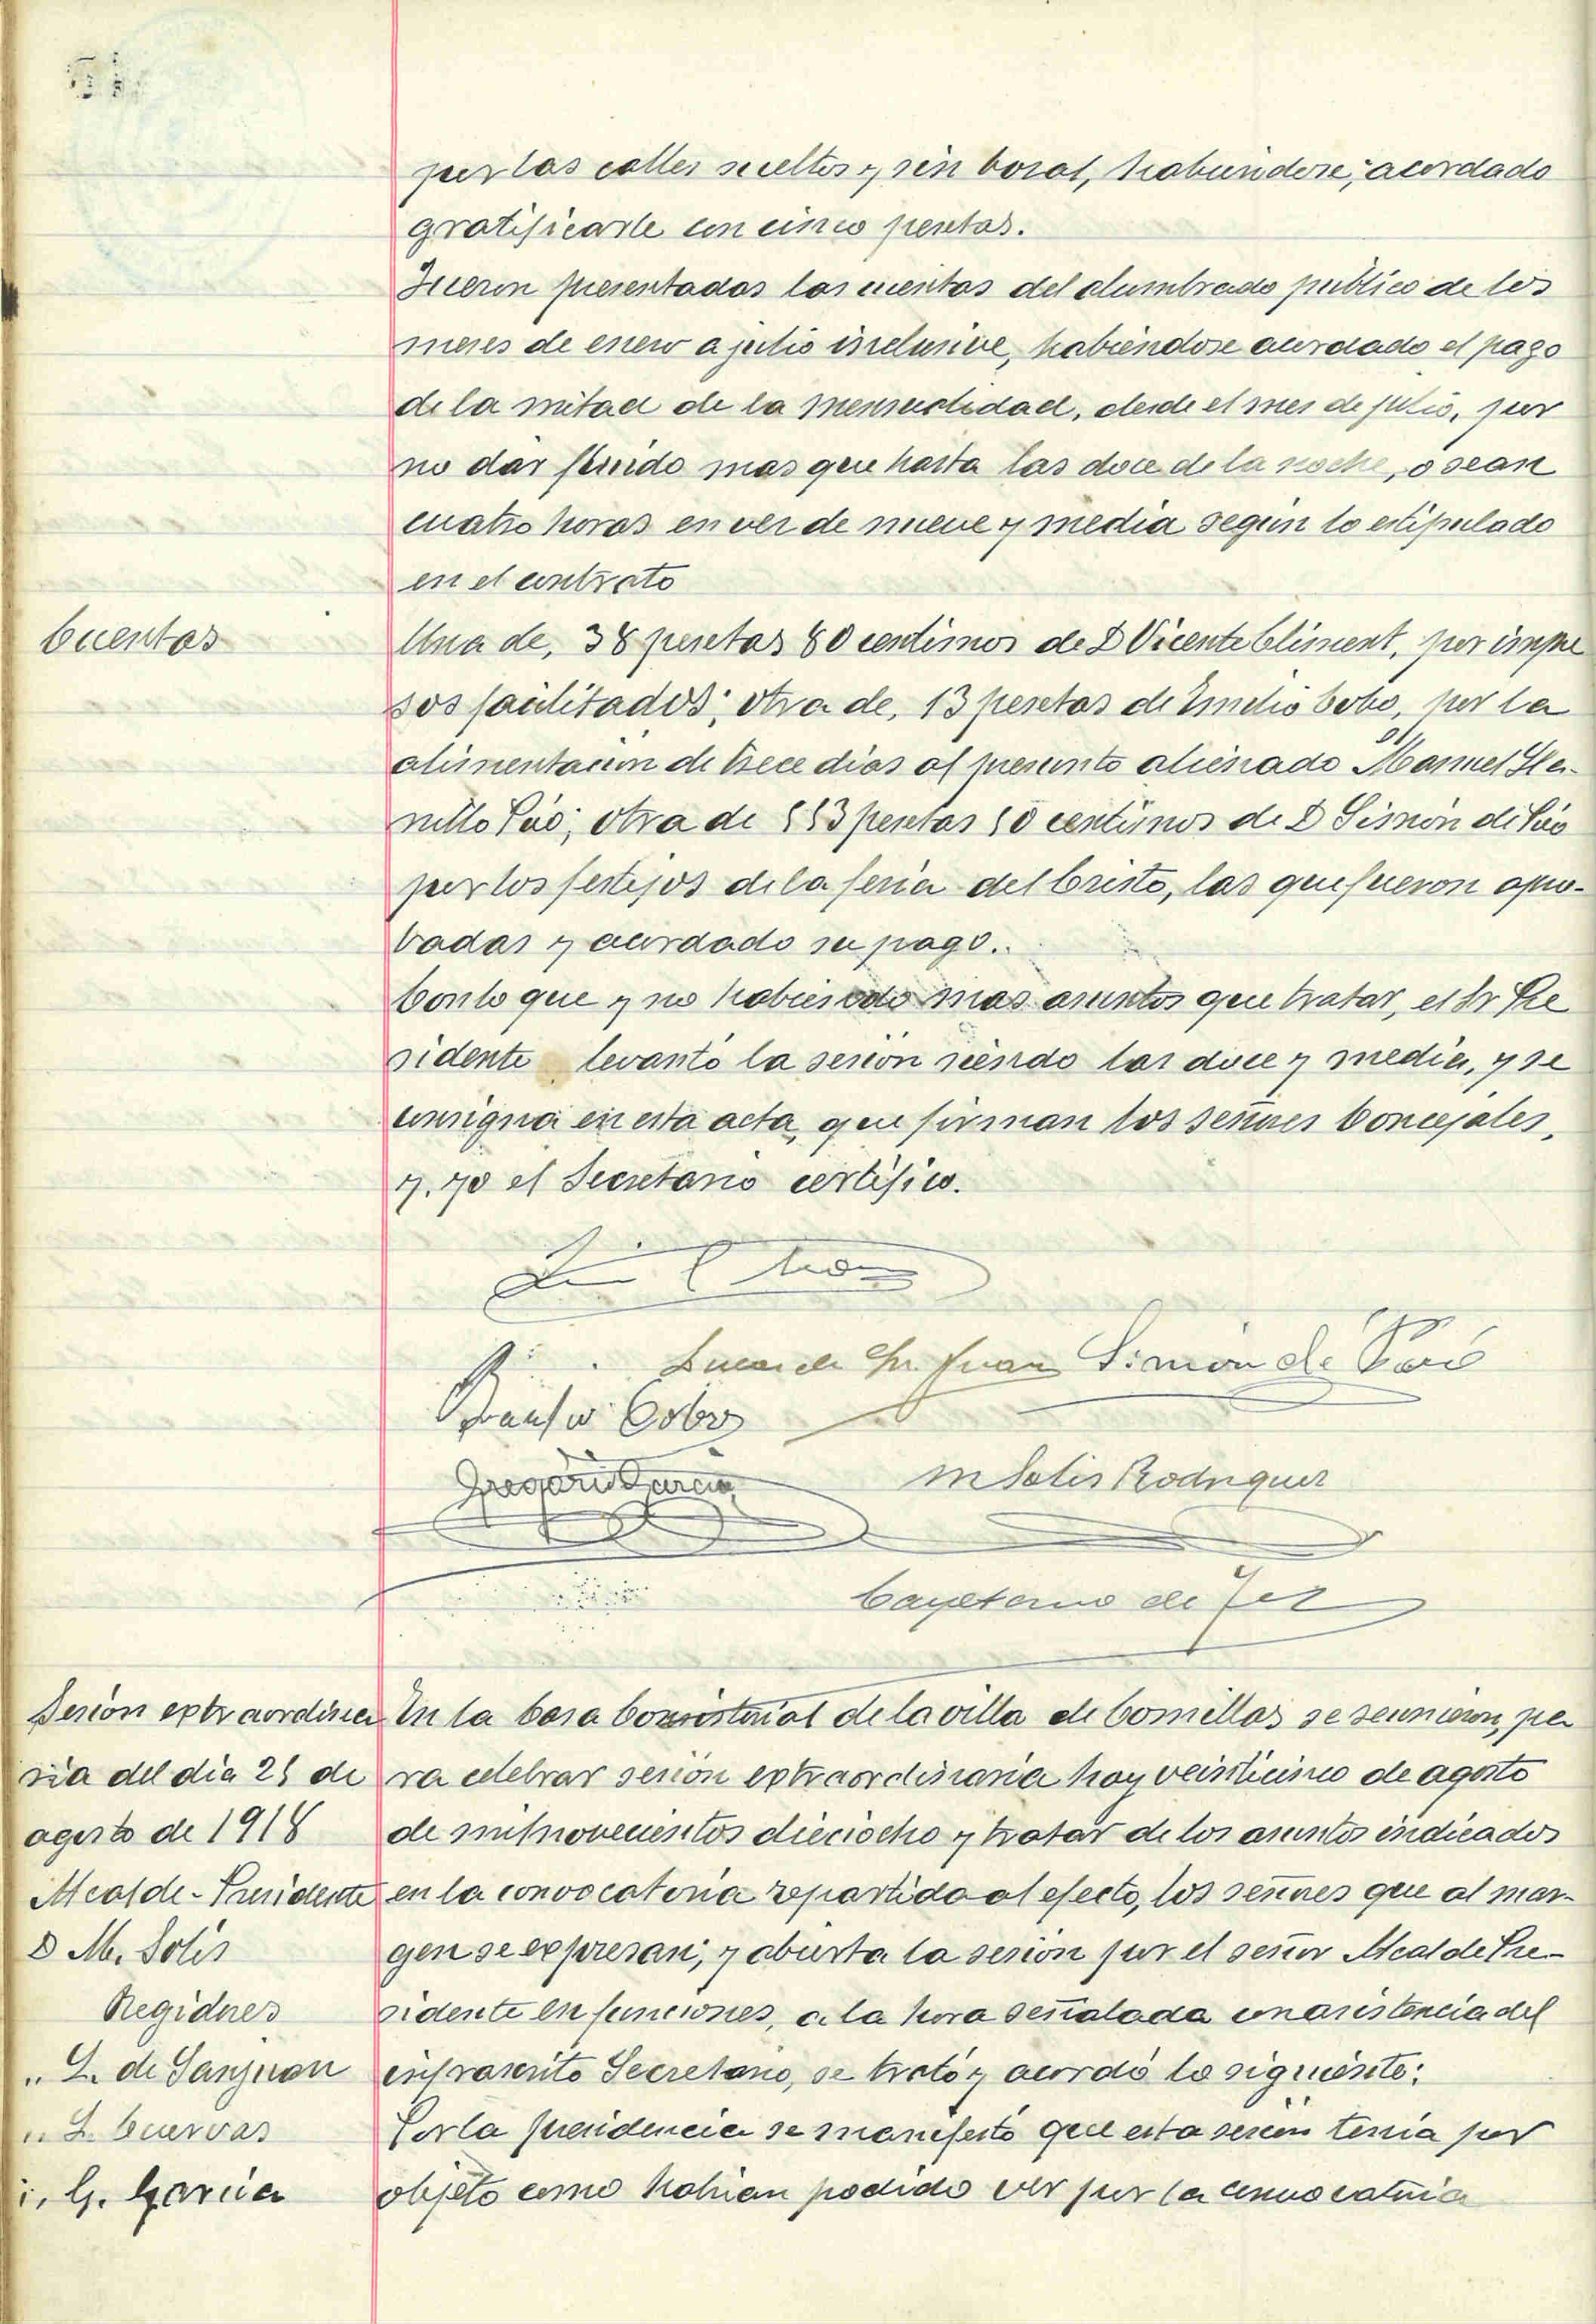 por las calles sueltos y sin bozal, habiéndose, acordado
gratificarle con cinco pesetas.
Fueron presentadas las cuentas del alumbrado público de los
meses de enero a julio inclusive, habiéndose acordado el pago
de la mitad de la mensualidad, desde el mes de julio, por
no dar fluido mas que hasta las doce de la noche, o sean
cuatro horas en vez de nueve y media según lo estipulado
en el contrato
Cuentas
Una de, 38 pesetas 80 centimos de D Vicente Climent, por impre
sos facilitados; otra de, 13 pesetas de Emelio Cobo, por la
alimentación de trece dias al presunto alienado Manuel
otra de pesetas centimos de D Simón de
por los festejos de la feria del Cristo, las que fueron apro-
badas y acordado su pago.
Con lo que y no habiendo mas asuntos que tratar, el Sr Pre
sidente levantó la sesion siendo las doce y media, y se
consigna en esta acta, que firman los señores Concejales,
y, yo el Secretario certifico.
Simón de
Cobo
Gregorio Garcia
M Solis Rodriguez
Cayetano de
Sesión extraordina
ria del dia 25 de
agosto de 1918
Alcalde-Presidente
D M. Solis
Regidores
" L. de Sanjuan
" L. Cuervas
" G. Garcia
En la Casa Consistorial de la villa de Comillas se reunieron, pa
ra celebrar sesión extraordinaria hoy veinticinco de agosto
de mil novecientos dieciocho y tratar de los asuntos indicados
en la convocatoria repartida al efecto, los señores que al mar-
gen se expresan; y abierta la sesión por el señor Alcalde Pre-
sidente en funciones, a la hora señalada con asistencia del
infrascrito Secretario, se trató y acordó lo siguiente:
Por la presidencia se manifestó que esta sesión tenía por
objeto como habian podido ver por la convocatoria